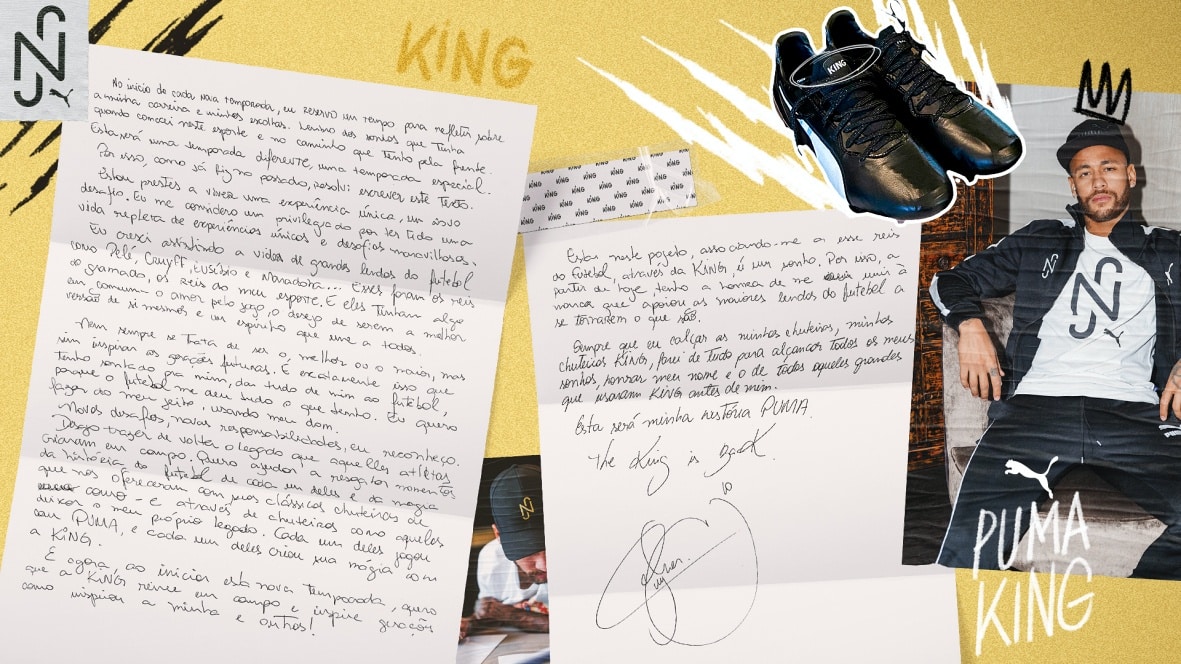 KING
No início de cada nova temporada, eu reservo um tempo para refletir sobre
a minha carreira e minhas escolhas. Lembro dos sonhos que tinha
quando comecei neste esporte e no caminho que tenho pela frente.
Esta será uma temporada diferente, uma temporada especial.
Por isso, como já fiz no passado, resolvi escrever este texto.
Estou prestes a viver uma experiência única, um novo
desafio. Eu me considero um privilegiado por ter tido uma
vida repleta de experiências únicas e desafios maravilhosos.
Eu cresci assistindo a vídeos de grandes lendas do futebol
como Pelé, Cruyff, Eusébio e Maradona... Esses foram os reis
do gramado, os reis do meu esporte. E eles tinham algo
em comum: o amor pelo jogo, o desejo de serem a melhor
versão de si mesmos e um espírito que une a todos.
Nem sempre se trata de ser o melhor ou o maior, mas
sim inspirar as gerações futuras. É exatamente isso que
tenho sonhado pra mim, dar tudo de mim ao futebol,
porque o futebol me deu tudo o que tenho. Eu quero
fazer do meu jeito, usando meu dom.
Novos desafios, novas responsabilidades, eu reconheço.
Desejo trazer de volta o legado que aqueles atletas
criaram em campo. Quero ajudar a resgatar momentos
da história do futebol de cada um deles e da magia
que nos ofereceram com suas clássicas chuteiras de
couro - e através de chuteiras como aquelas
deixar o meu próprio legado. Cada um deles jogou
com PUMA, e cada um deles criou sua mágia com
a KING.
E agora, ao iniciar esta nova temporada, quero
que a KING reine em campo e inspire gerações
como inspirou a minha e outras!
KING KING KING KING KING
Estar neste projeto, associando-me a esse reis
do futebol, através da KING é um sonho. Por isso, a
partir de hoje, tenho a honra de me unir à
marca que apoiou as maiores lendas do futebol a
se tornarem o que são.
Sempre que eu calçar as minhas chuteiras, minhas
chuteiras KING, farei de tudo para alcançar todos os meus
sonhos, honrar meu nome e o de todos aqueles grandes
que usaram KING antes de mim.
Esta será minha história PUMA.
The King is Back
10
KING
PUMA
KING